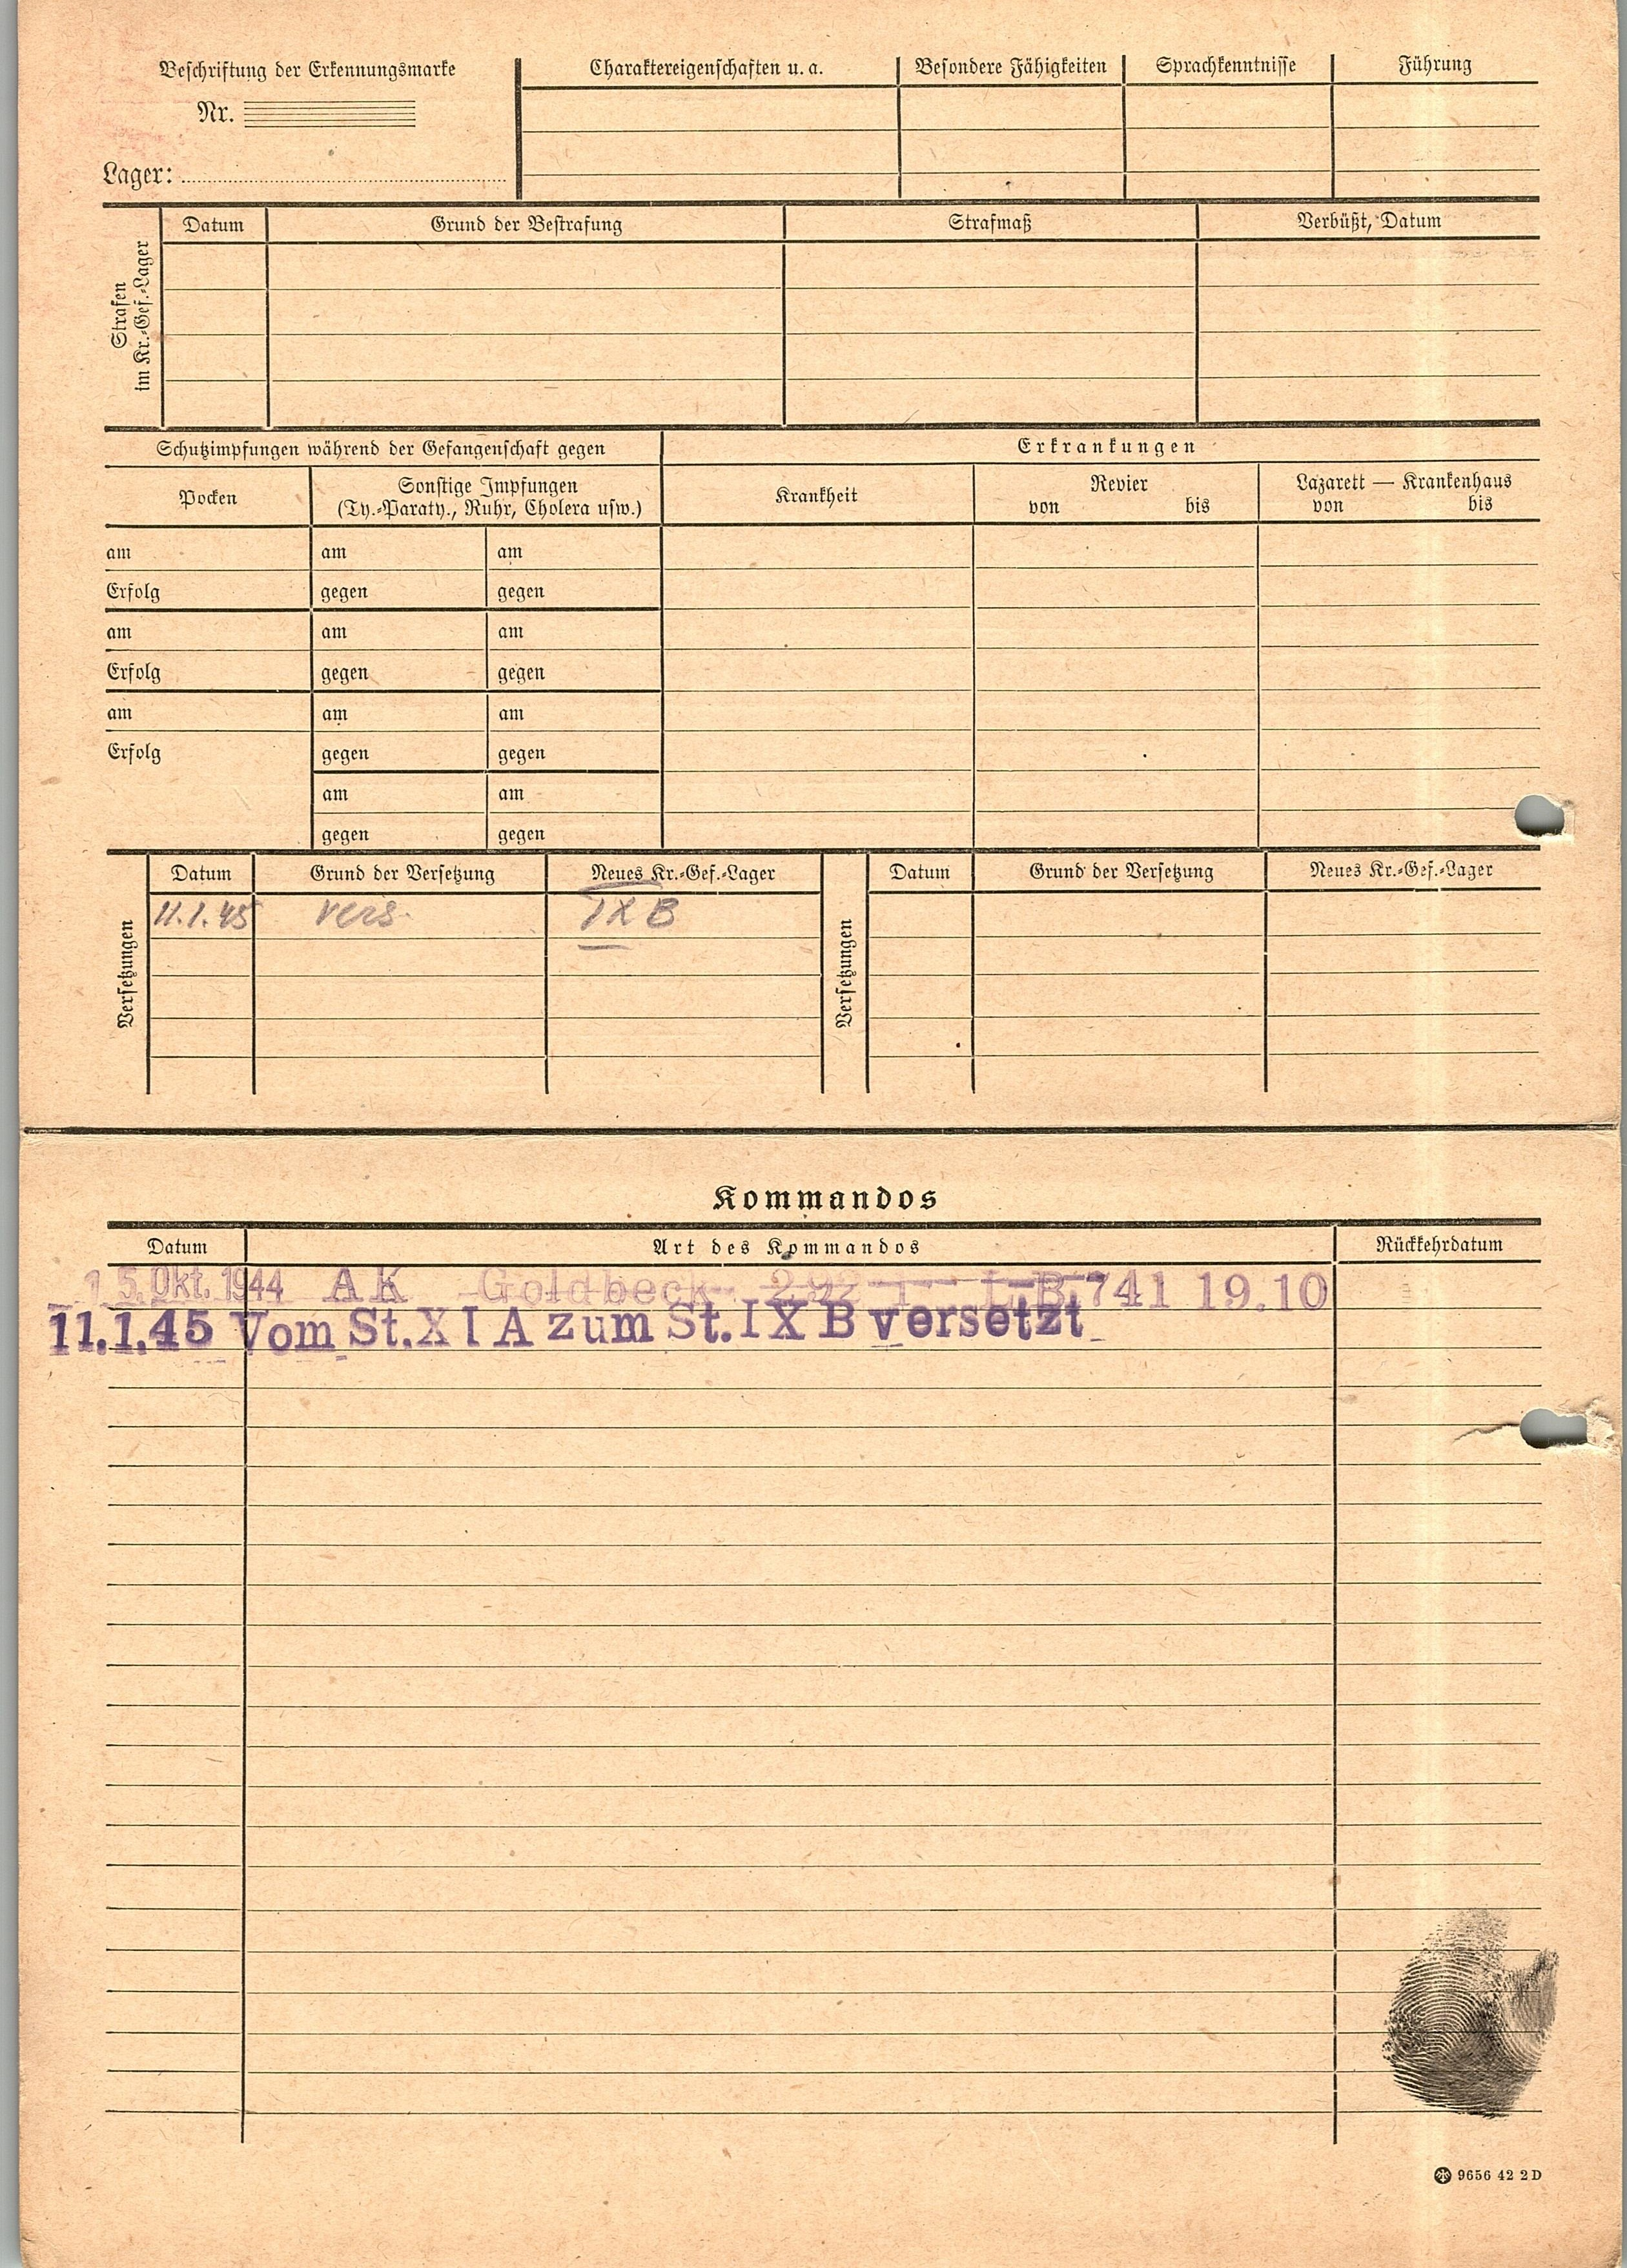 Beschriftung der Erkennungsmarke
Nr.
Lager:
Charaktereigenschaften u. a. Besondere Fähigkeiten Sprachkenntnisse Führung
Strafen
im Kr.-Gef.-Lager
Datum Grund der Bestrafung Strafmaß Verbüßt, Datum
Schutzimpfungen während der Gefangenschaft gegen Erkrankungen
Pocken Sonstige Impfungen
(Ty.-Paraty., Ruhr, Cholera usw.)
Krankheit Revier
von bis
Lazarett — Krankenhaus
von bis
am am am
Erfolg gegen gegen
am am am
Erfolg gegen gegen
am am am
Erfolg gegen gegen
am am
gegen gegen
Versetzungen
Datum Grund der Versetzung Neues Kr.-Gef.-Lager
11.1.45 vers. IX B
Versetzungen
Datum Grund der Versetzung Neues Kr.-Gef.-Lager
Kommandos
Datum Art des Kommandos Rückkehrdatum
15. Okt. 1944 AK Goldbeck 741 19.10
11.1.45 Vom St. XI A zum St. IX B versetzt
9656 42 2 D